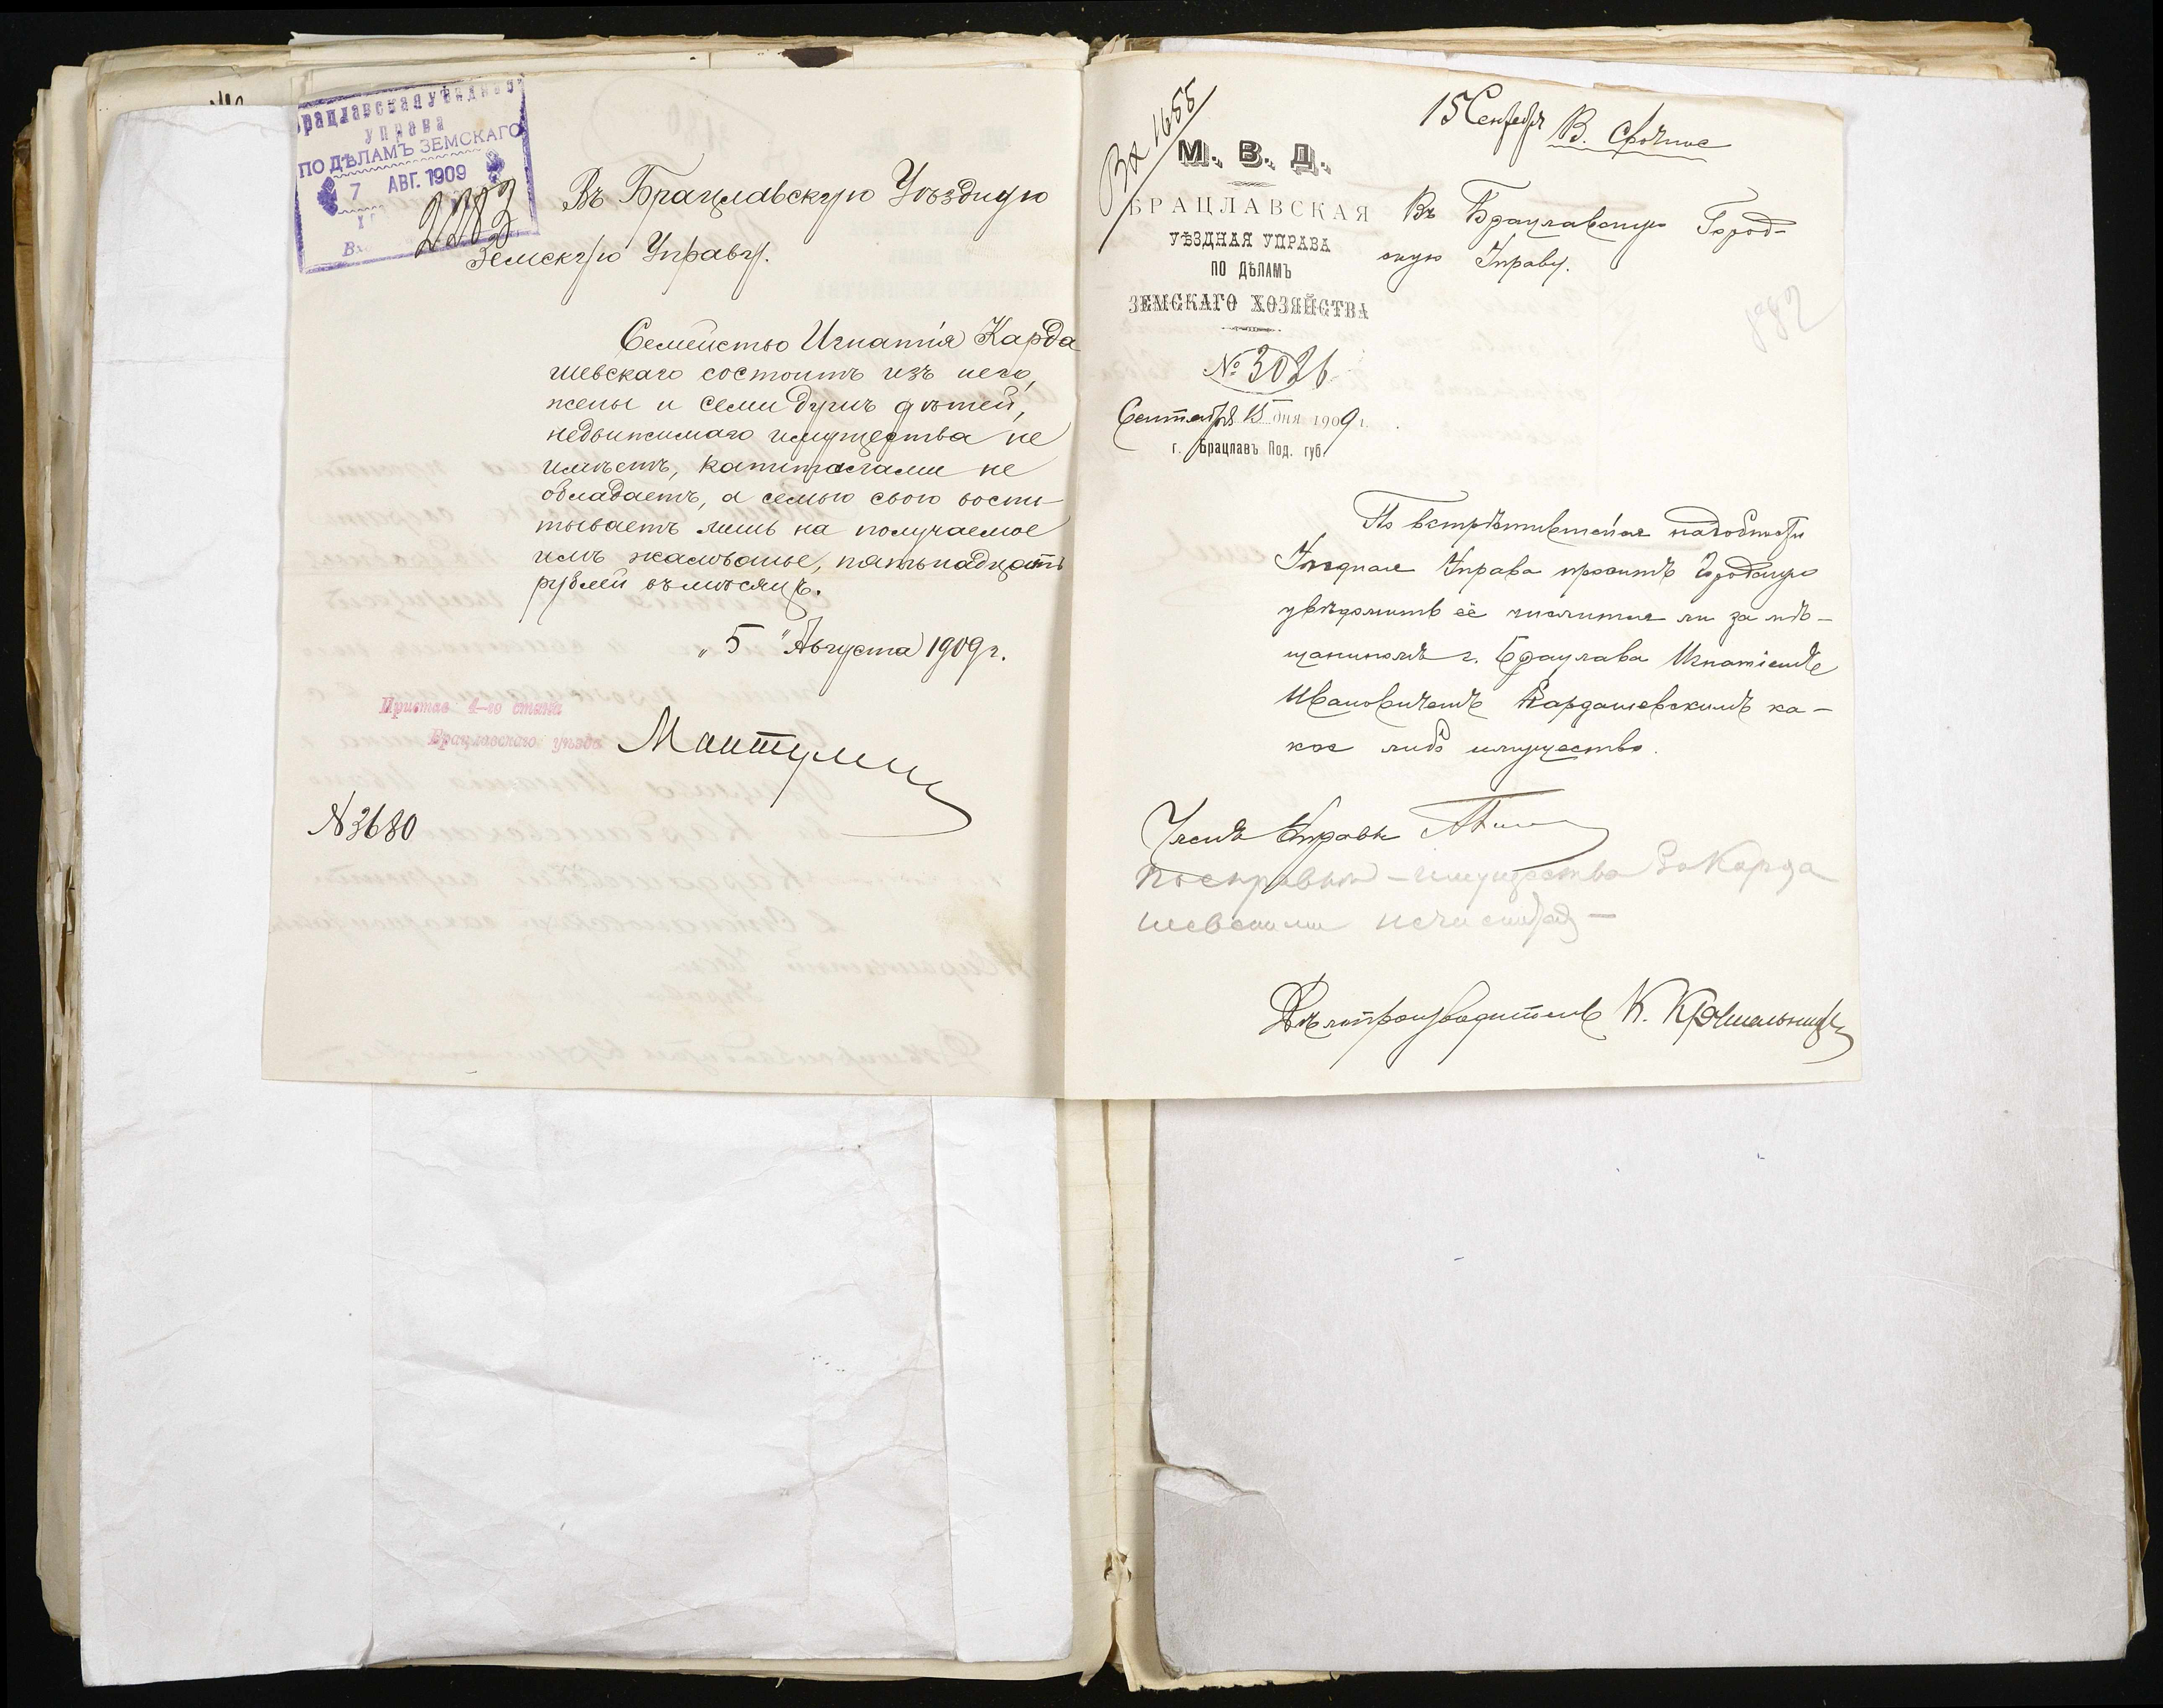 Брацлавская уѣздная
управа
ПО ДѢЛАМЪ ЗЕМСКАГО
7 АВГ. 1909
Вх. 2283
Въ Брацлавскую Уѣздную
Земскую Управу.
Семейство Игнатія Карда
шевскаго состоитъ изъ него,
жены и семи душъ дѣтей,
недвижимаго имущества не
имѣетъ, капиталами не
обладаетъ, а семью свою воспи-
тываетъ лишь на получаемое
имъ жалованье, пятьнадцать
рублей въ мѣсяцъ.
„5" Августа 1909 г.
Пристав 4-го стана
Брацлавскаго уѣзда
№ 3680
Вх 1655
15 Сентября
В. Срочное
М. В. Д.
БРАЦЛАВСКАЯ
УѢЗДНАЯ УПРАВА
ПО ДѢЛАМЪ
ЗЕМСКАГО ХОЗЯЙСТВА
№ 3026
Сентября 15 дня 1909 г.
г. Брацлавъ Под. губ.
Въ Брацлавскую Город-
скую Управу.
882
По встрѣтившейся надобности
Уѣздная Управа проситъ Городскую
увѣдомить её числится ли за мѣ-
щаниномъ г. Брацлава Игнатіемъ
Ивановичемъ Кардашевскимъ ка-
кое либо имущество.
Членъ Управы
По справкѣ - имущества за Карда
шевским не числится -
Дѣлопроизводитель К.